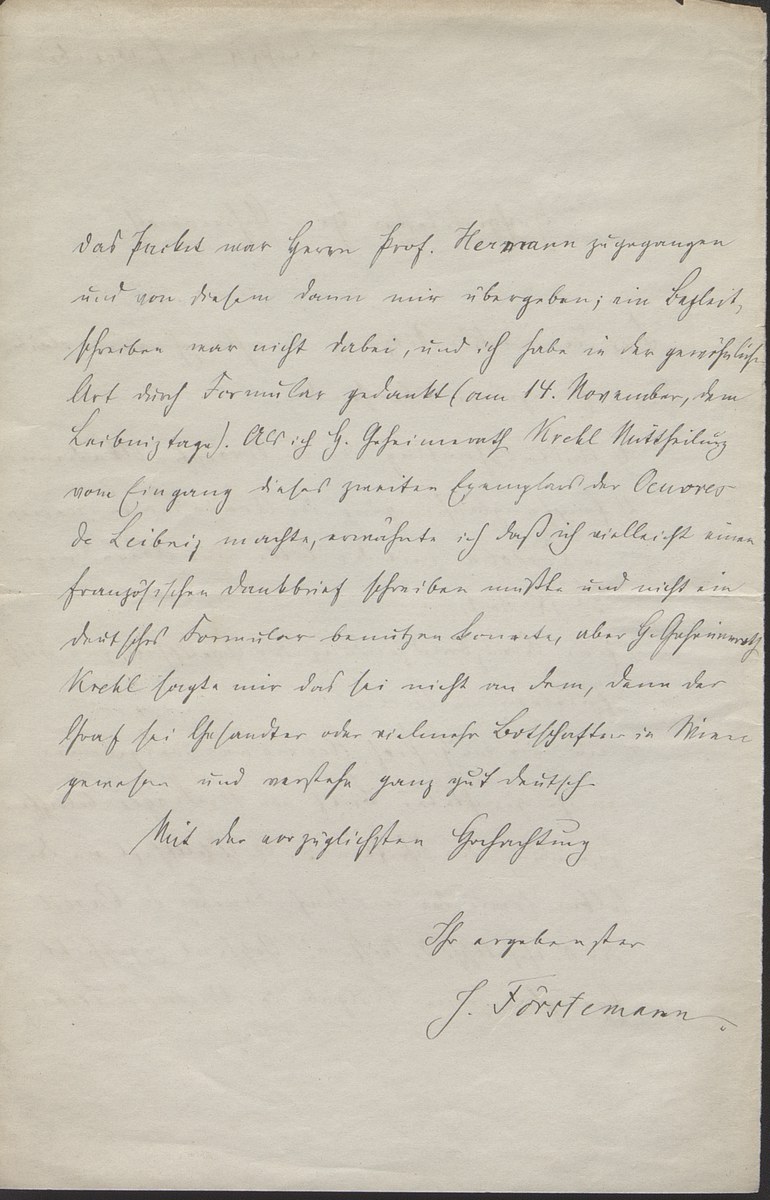 das Packet war Herrn Prof. Hermann zugegangen
und von diesem dann mir übergeben; ein Begleit-
schreiben war nicht dabei, und ich habe in der gewöhnlichen
Art durch Formular gedankt (am 14. November, dem
Leibniztage). Als ich H. Geheimerath Krehl Mittheilung
vom Eingang dieses zweiten Exemplars der Oeuvres
de Leibniz machte, erwähnte ich daß ich vielleicht einen
französischen Dankbrief schreiben müßte und nicht ein
deutsches Formular benutzen konnte, aber H. Geheimerath
Krehl sagte mir das sei nicht an dem, denn der
Graf sei Gesandter oder vielmehr Botschafter in Wien
gewesen und verstehe ganz gut deutsch
Mit der vorzüglichsten Hochachtung
Ihr ergebenster
J. Förstemann.